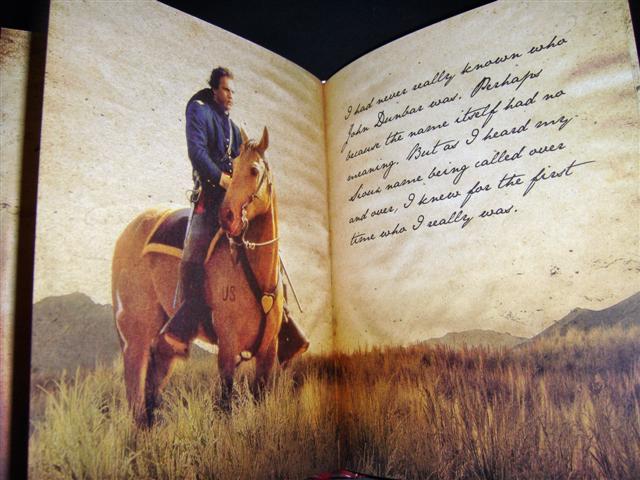 I had never really known who
John Dunbar was. Perhaps
because the name itself had no
meaning. But as I heard my
Sioux name being called over
and over, I knew for the first
time who I really was.
US